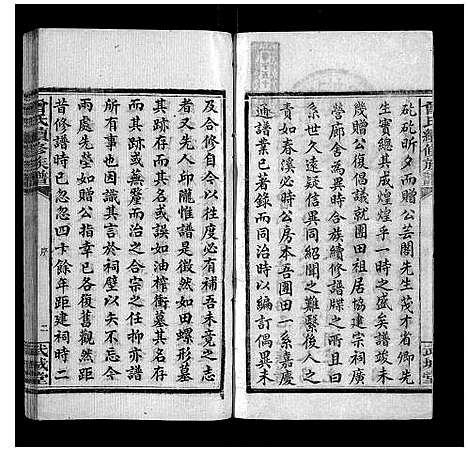 矻矻昕夕而贈公芸閣先生茂才省卿先
生實總其成煌煌乎一時之盛然譜竣未
幾贈公復倡議就團田祖居協建宗祠廣
營廊舍為異時合族續修譜牒之所且曰
系世久遠疑信異同紹聞之難繫後人之
責如春溪必時公房本吾團田一系嘉慶
通譜業已著錄而同治時以編訂偶異未
及合修自今以往度必有補吾未竟之志
者又先人邱隴惟譜是徵然如田螺形墓
其跡存而其名或誤如油榨衝墓其名存
而其跡或蕪釐而治之合宗之任抑亦譜
所有事也因識其言於祠壁以矢不忘今
兩處先塋如贈公指幸已各復舊觀然距
昔修譜時已忽忽四十餘年距建祠時二
曾氏續修族譜
序
二
武城堂